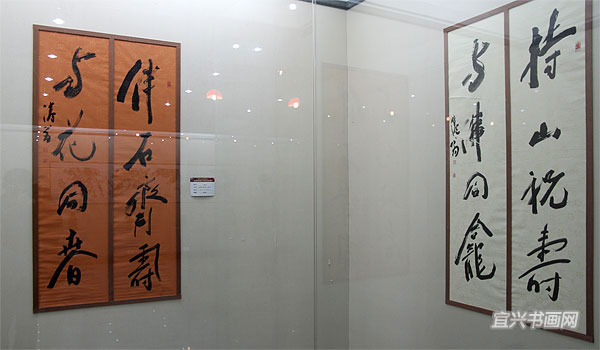 伴石齊壽
与花同春
持山祝壽
与佛同龕
宜兴书画网